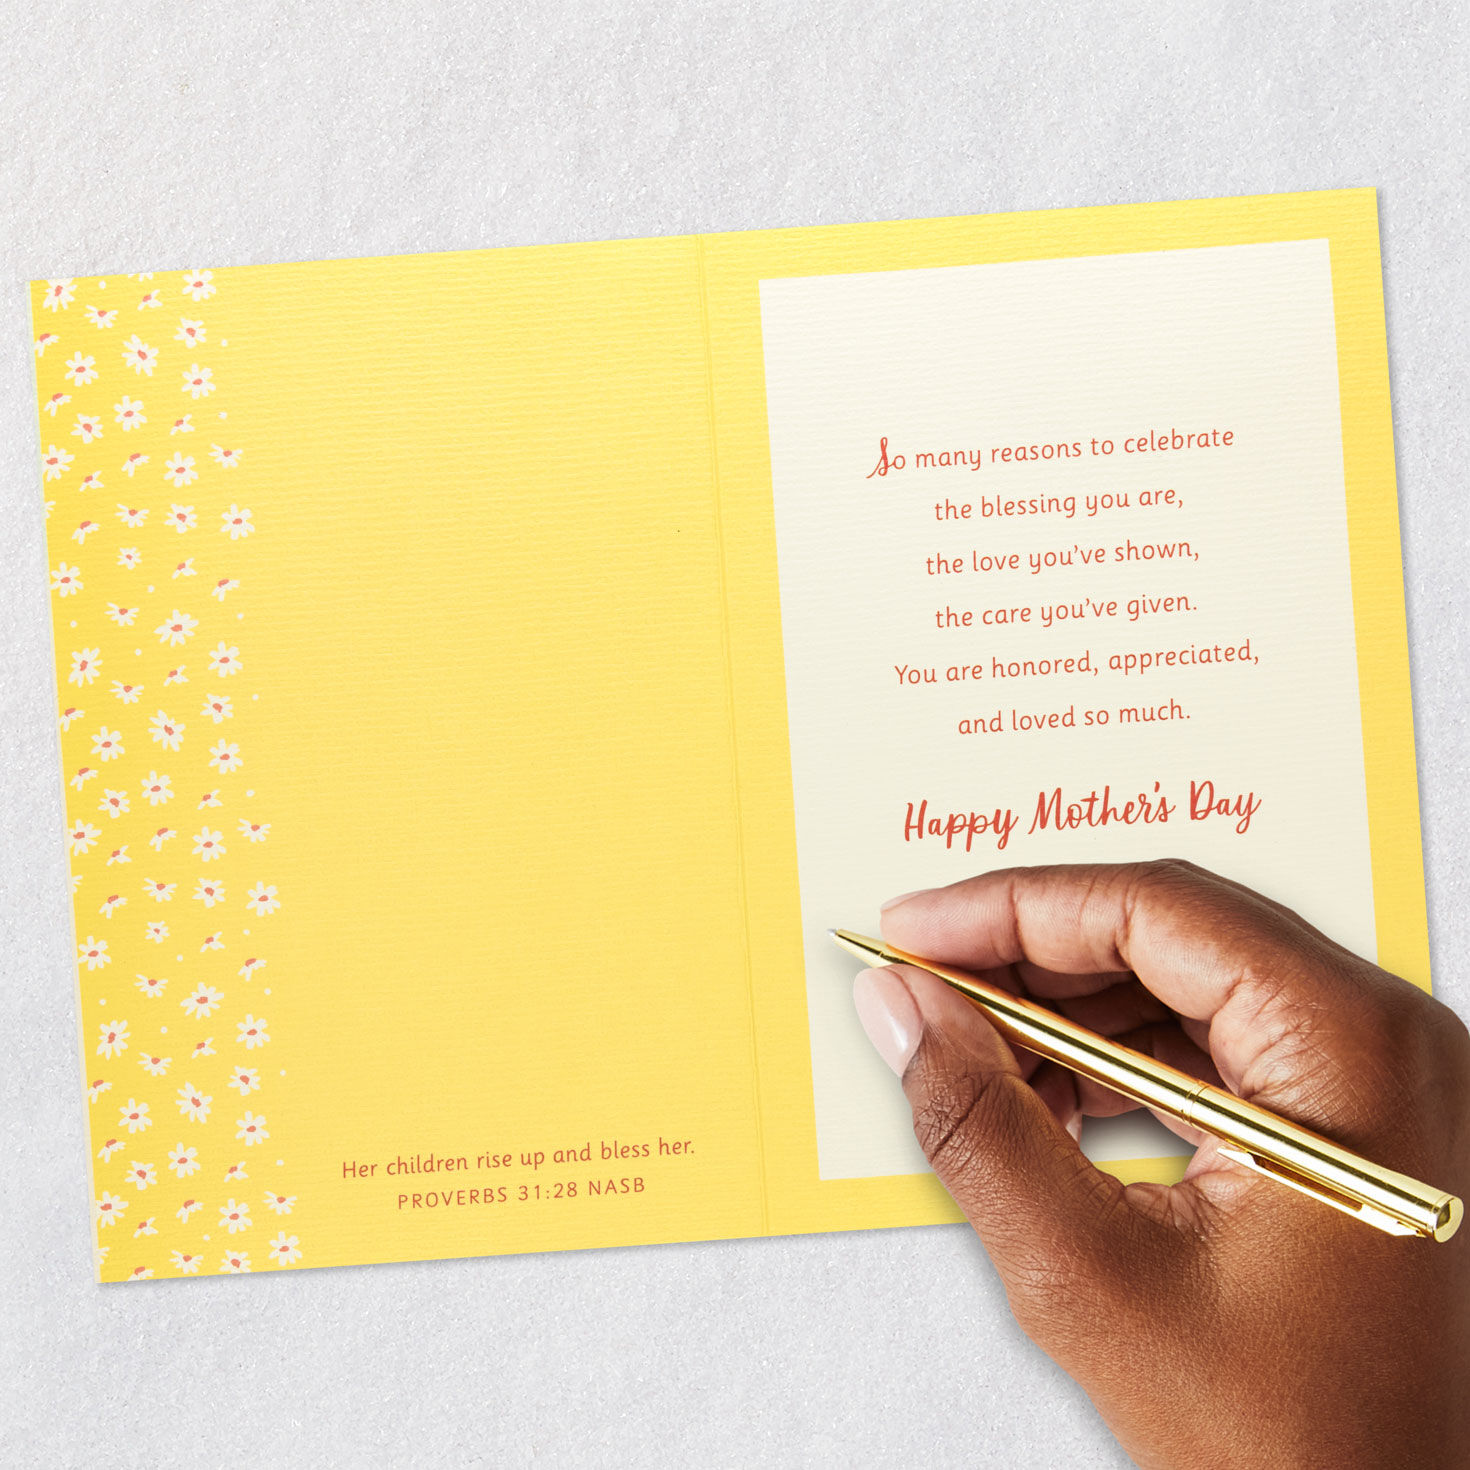 Her children rise up and bless her.
PROVERBS 31:28 NASB
So many reasons to celebrate
the blessing you are,
the love you've shown,
the care you've given.
You are honored, appreciated,
and loved so much.
Happy Mother's Day